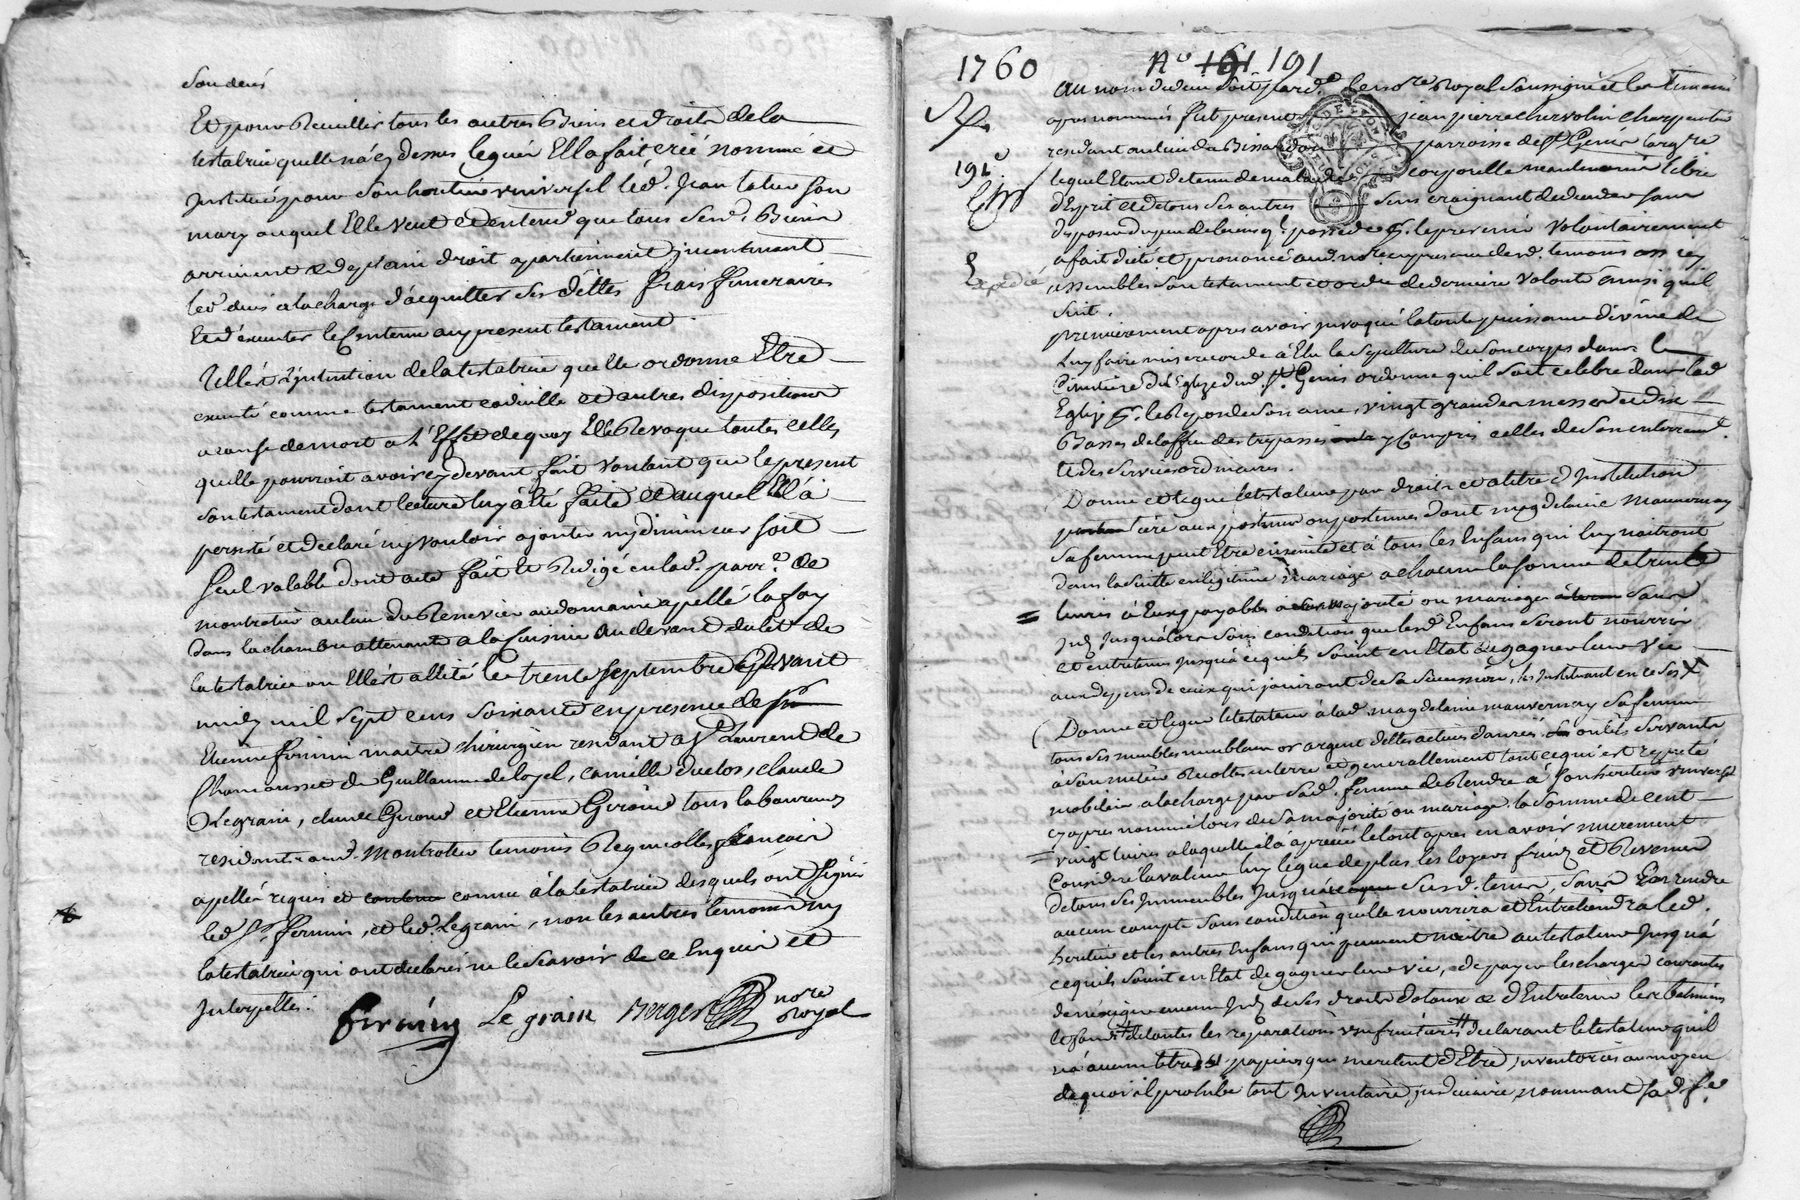 son deces
Et pour Recuillir tous les autres Biens et droits de la
testatrice quelle n'a cy dessus legué Elle a fait créé nommé et
Institué pour son heritier universel led. Jean son
mary auquel Elle veut et entend que tous send. Biens
arrivent & de plain droit apartiennent incontinant
led. deces a la charge d'acquitter ses dettes frais funeraires
Et d'executer le Contenu au present testament
Telle est l'intention de la testatrice qu'elle ordonne Etre
executé comme testament codicille et autres dispositions
a cause de mort a l'Effet de quoy Elle Revoque toutes celles
quelle pourroit avoir cy devant fait voulant que le present
son testament dont lecture luy a été faite et auquel Ell'a
persisté et declaré n'y vouloir ajouter ny diminuer soit
seul valable dont acte fait et Redigé en lad. parr.e de
montrotier au lieu du Renevier au domaine appellé la fay
dans la chambre attenante a la Cuisine au devant du lit de
la testatrice ou Elle est allité le trente septembre avant
midy mil sept cens soixante en presence de sr
Etienne fermin maitre chirurgien residant a St Laurent de
Chamousset de Guillaume deloyel, camille duclos, claude
Legrain, claude Giroud et Etienne Giroud tous laboureurs
residents aud. montrotier temoins Requis
apellés requis et connu a la testatrice desquels ont signés
led. sr. fermin, et led. Legrain, non les autres temoins ny
la testatrice qui ont declarés ne le scavoir de ce Enquis et
Interpellés.
fermin Le grain Berger nore Royal
1760 No 161 191
au nom de dieu soit pard.t le nore Royal soussigné et les temoins
apres nommés fut present jean pierre chervolin charpentier
residant au lieu du parroisse de St Genis largre
lequel Etant detenu de maladie corporelle neanmoins libre
d'Esprit et de tous ses autres sens craignant de deceder sans
disposer du peu de biens q. possede le present volontairement
a fait dicté et prononcé aud. nore en presence desd. temoins
assemblés son testament et ordre de derniere volonté ainsi quil
suit.
191e
Expedié
premierement apres avoir invoqué la toute puissance divine de
luy faire misericorde a Elu la sepulture de son corps dans le
Cimetiere de l'Eglise dud. St. Genis ordonne quil soit celebré dans lad.
Eglise p. le Repos de son ame, vingt grandes messes et dix
Basses de l'office des trepassés y Compris celles de son enterrement
et des services ordinaires.
Donne et legue le testateur par droit et a titre d'Institution
au postume ou postumes dont magdelaine mauvernay
sa femme peut Etre enceinte et a tous les Enfans qui luy naitront
dans la suitte en legitime mariage a chacun la somme de trente
livres a Eux payable a leur majorité ou mariage sans
Int. jusqu'alors sous condition que lesd. Enfans seront nourris
et entretenus jusqua ce quils soient en Etat de gagner leur vie
aux depens de ceux qui jouiront de sa succession, les Instituant en ce ses X
Donne et legue le testateur a lad. magdelaine mauvernay sa femme
tous ses meubles meublans or argent dettes actives danrées outils servants
a son metier Recoltes en terre et generallement tout ce qui est reputé
mobilier a la charge par sad. femme de Rendre a son heritier universel
cy apres nommé lors de sa majorité ou mariage la somme de cent
vingt livres a laquelle il a aprecié le tout apres en avoir murement
Consideré la valeur luy legue de plus les loyers fruits et Revenus
de tous ses Immeubles jusqu'a susd. terme, sans En rendre
aucun compte sous condition qu'elle nourrira et Entretiendra led.
heritier et les autres Enfans qui peuvent naitre au testateur jusqu'a
ce quils soient en Etat de gagner leur vie, de payer les charges courantes
de n'exiger aucun Int. de ses droits dotaux et d'Entretenir les batimens
de toutes les reparations usufruitieres declarant le testateur quil
n'a aucuns titres et papiers qui meritent d'Etre inventoriés au moyen
de quoi il prohibe tout Inventaire judiciaire nommant sad. fe